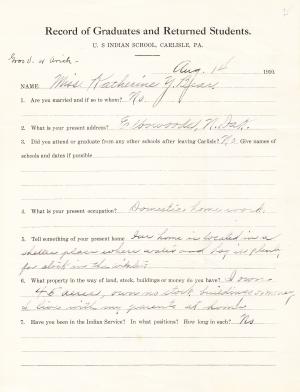 Record of Graduates and Returned Students.
U. S INDIAN SCHOOL, CARLISLE, PA.
Aug. 14 1910.
NAME Miss Katherine Y. Bear
1. Are you married and if so to whom? No.
2. What is your present address? Elbowoods, N. Dak.
3. Did you attend or graduate from any other schools after leaving Carlisle? No Give names of
schools and dates if possible
4. What is your present occupation? Domestic home work.
5. Tell something of your present home Our home is located in a
place where and hay is plenty
for stock in the winter
6. What property in the way of land, stock, buildings or money do you have? I own
acres, own no stock buildings or money
I live with my parents at home
7. Have you been in the Indian Service? In what positions? How long in each? No